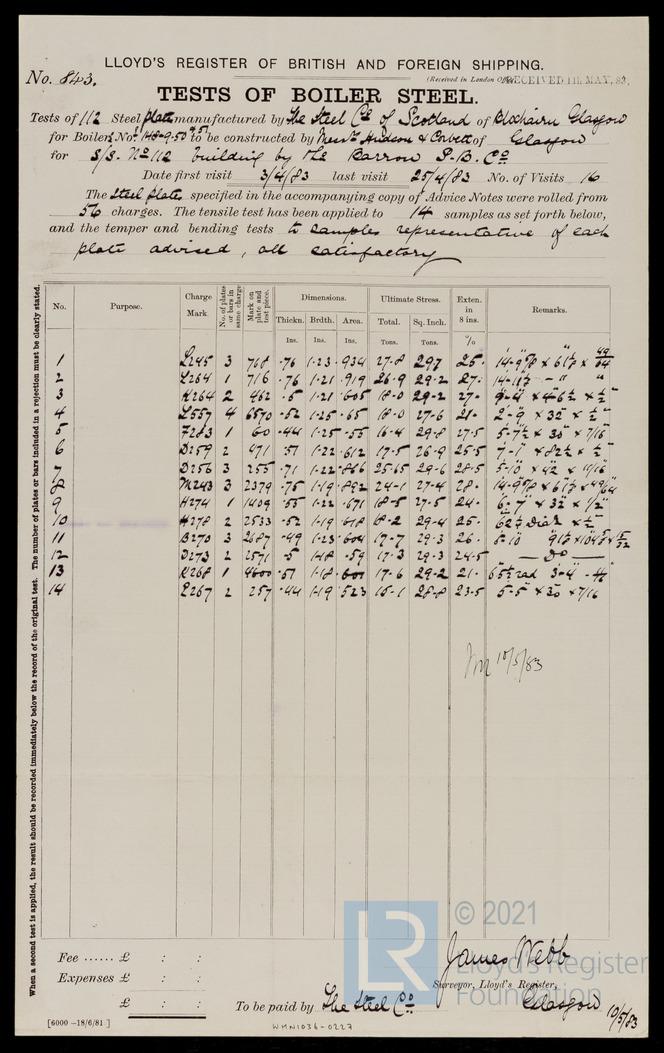 LLOYD'S REGISTER OF BRITISH AND FOREIGN SHIPPING.
No. 843.
(Received in London RECEIVED 11 MAY. 83.
TESTS OF BOILER STEEL.
Tests of 112 Steel plates manufactured by The Steel Co of Scotland of Blochairn Glasgow
for Boilers Nos 148-9-50 & 51 to be constructed by Messrs Hudson & Corbett of Glasgow
for S/S. No 112 building by the Barrow S.B. Co
Date first visit 3/4/83 last visit 25/4/83 No. of Visits 16
The Steel plates specified in the accompanying copy of Advice Notes were rolled from
56 charges. The tensile test has been applied to 14 samples as set forth below,
and the temper and bending tests to samples representative of each
plate advised, all satisfactory
No. Purpose. Charge Mark. No. of plates or bars in same charge Mark on plate and test piece. Dimensions. Ultimate Stress. Exten. in 8 ins. Remarks.
Thickn. Brdth. Area. Total. Sq. Inch.
Ins. Ins. Ins. Tons. Tons. %
1 L245 3 768 .76 1.23 .934 27.8 29.7 25.
2 L264 1 716 .76 1.21 .919 26.9 29.2 27.
3 K264 2 462 .5 1.21 .605 18.0 29.2 27.
4 L557 4 6570 .52 1.25 .65 18.0 27.6 21. 2-9 x 32 x ½"
5 F283 1 60 .44 1.25 .55 16.4 29.8 27.5 5-7½ x 30 x 7/16
6 D259 2 471 .51 1.22 .612 17.5 26.9 25.5 7-1 x 82½ x ½"
7 D256 3 255 .71 1.22 .866 25.65 29.6 28.5 5-10 x 42 x 11/16
8 M243 3 2379 .75 1.19 .892 24.1 27.4 28.
9 H274 1 1409 .55 1.22 .671 18.5 27.5 24. 6-7 x 32 x 1/2"
10 H278 2 2533 .52 1.19 .618 18.2 29.4 25. 62½ Dia x ½"
11 B270 3 2687 .49 1.23 .604 17.7 29.3 26.
12 D273 2 2571 .5 1.18 .59 17.3 29.3 24.5 — Do —
13 K268 1 4600 .51 1.18 .601 17.6 29.2 21.
14 E267 2 257 .44 1.19 .523 15.1 28.8 23.5 5-5 x 30 x 7/16
10/5/83
When a second test is applied, the result should be recorded immediately below the record of the original test. The number of plates or bars included in a rejection must be clearly stated.
© 2021
LR
Lloyd's Register
Foundation
Fee ...... £ : :
Expenses £ : :
£ : :
James Webb
Surveyor, Lloyd's Register,
To be paid by The Steel Co Glasgow 10/5/83
[6000 -18/6/81]
WMN1036-0227